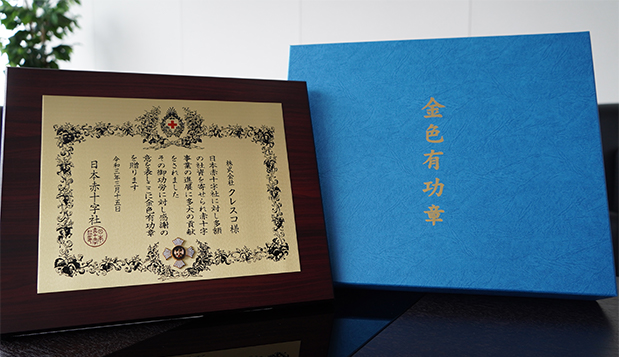 株式会社 クレスコ 様
日本赤十字社に対し多額
の社資を寄せられ赤十字
事業の進展に多大の貢献
をされました
その御功労に対し感謝の
意を表しここに金色有功章
を贈ります
日本赤十字社
金色有功章